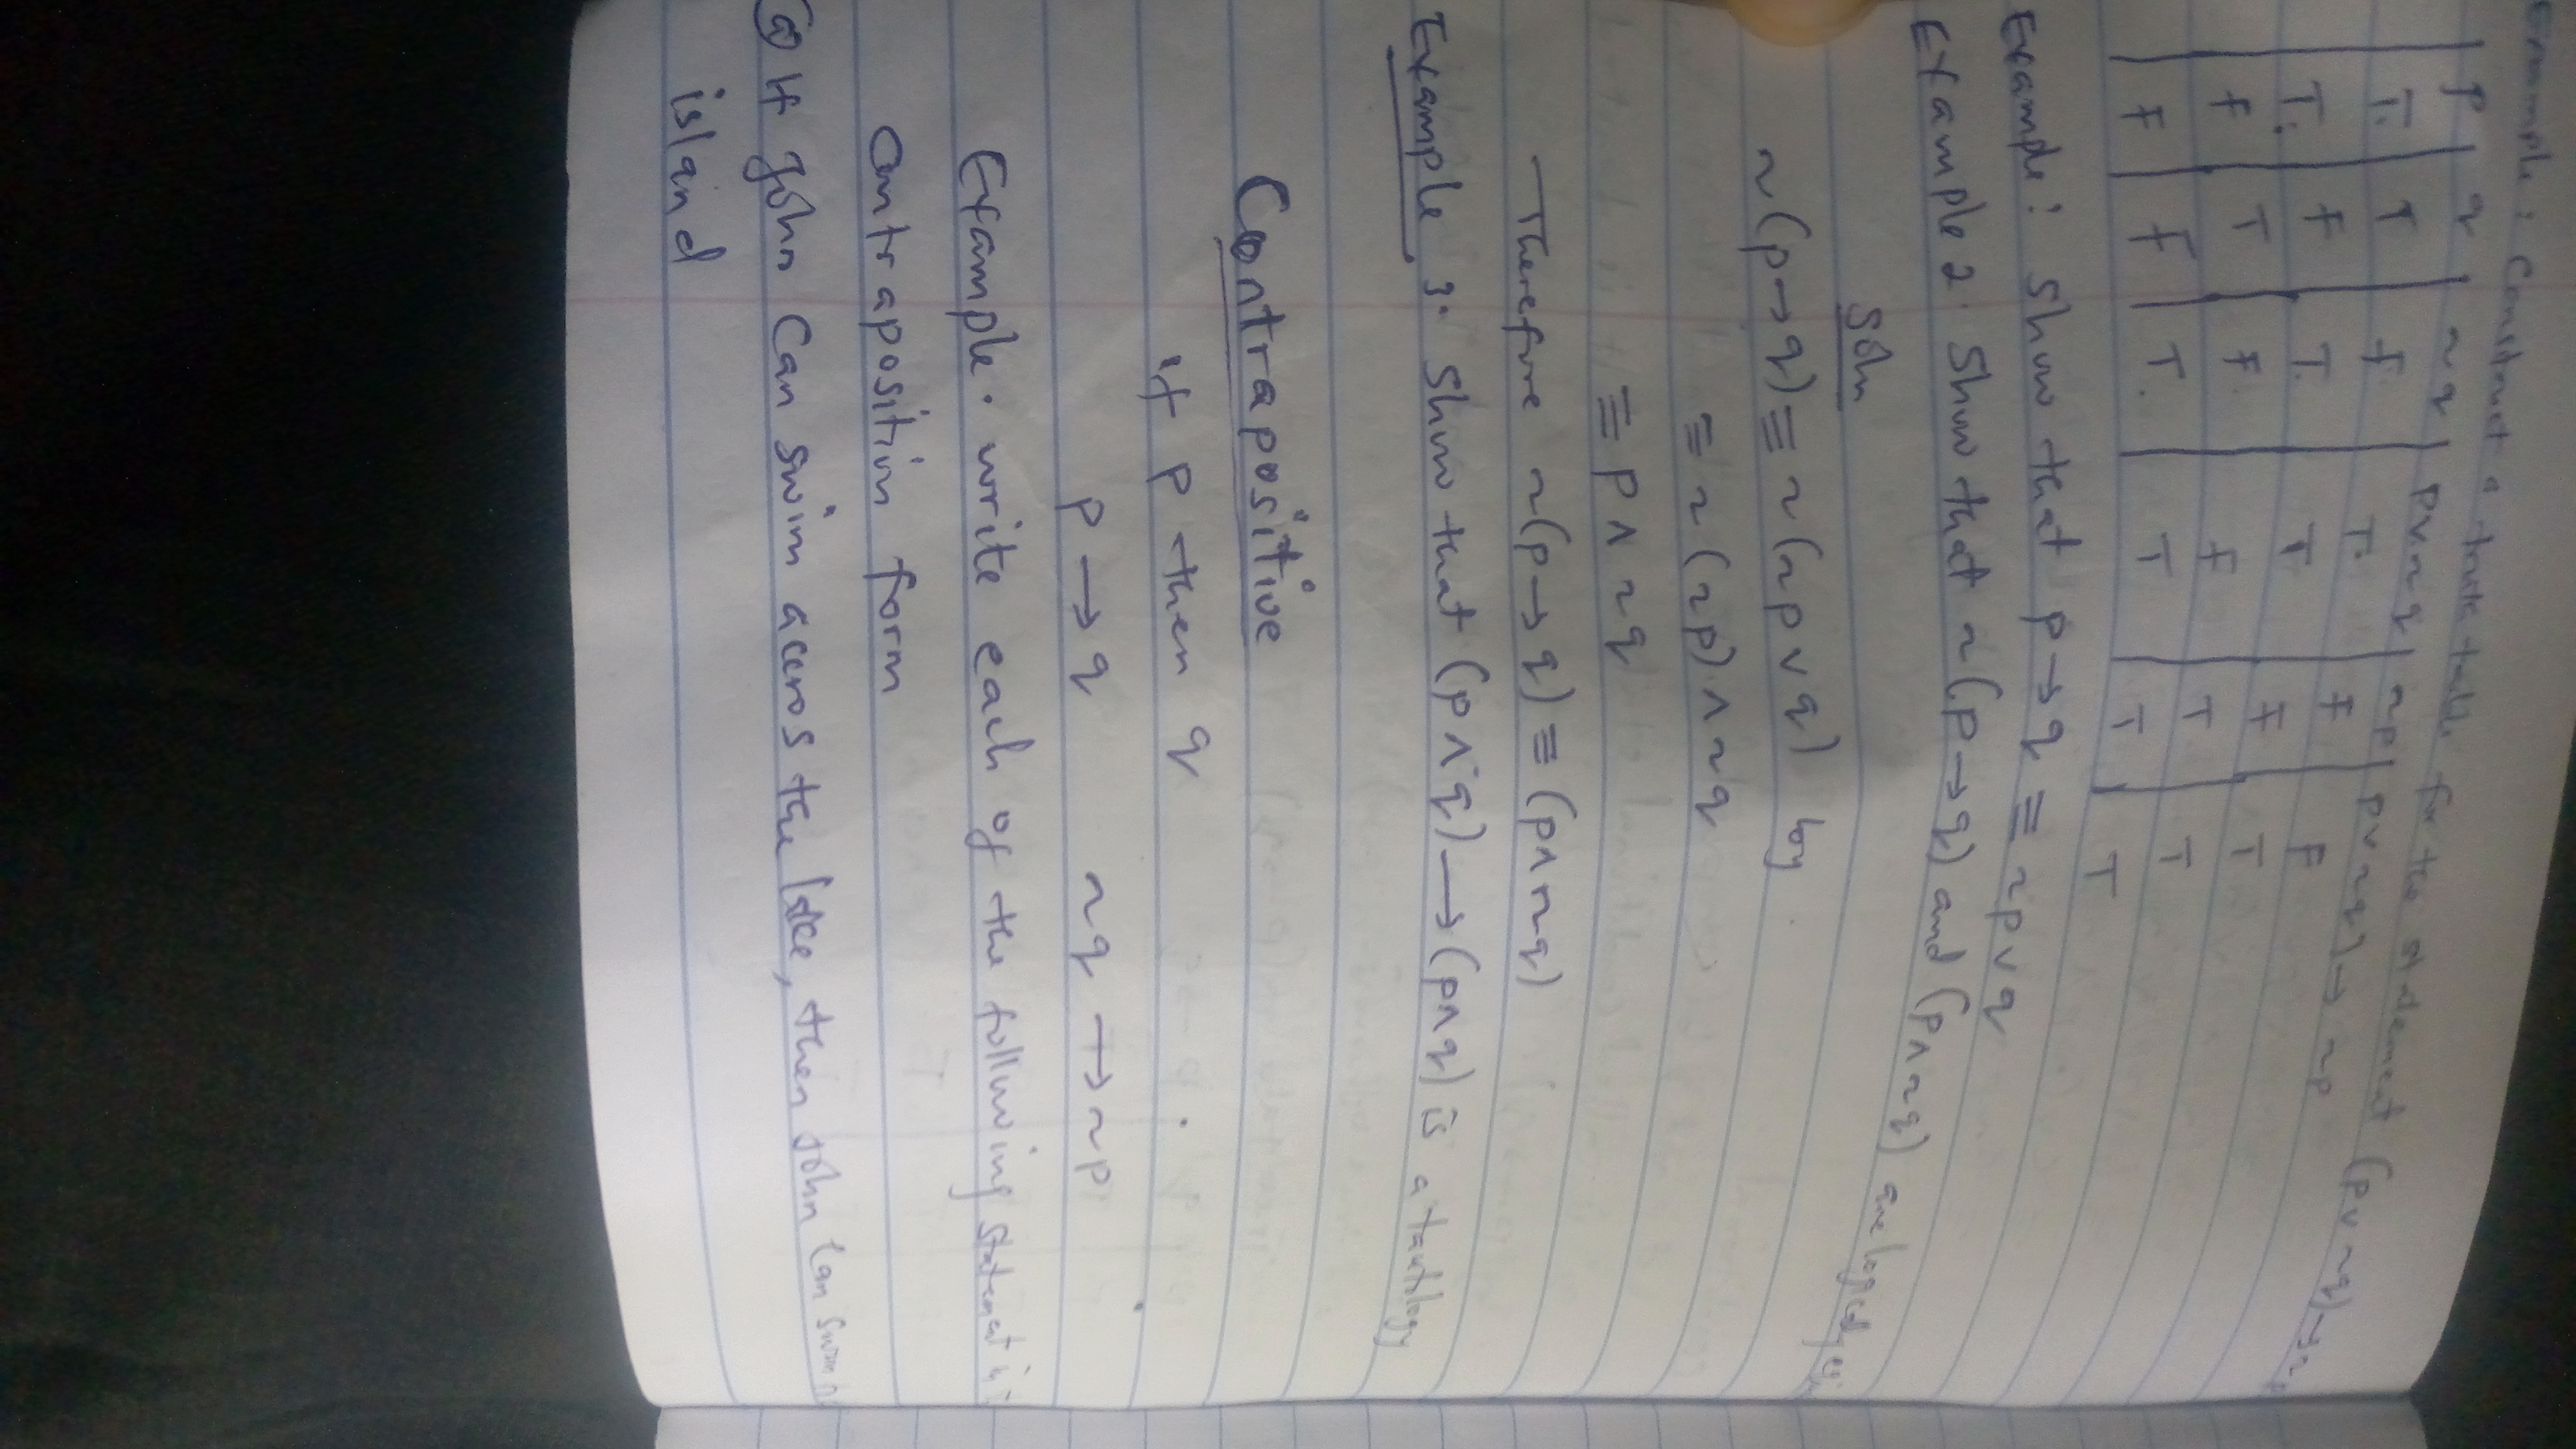 Example: Construct a truth table for the statement (p∨~q)→~
p q ~q p∨~q ~p p∨~q)→~p
T. T f T. F F
T. F T. T F T
F T F. F T T
F F T. T T T
Example: Show that p→q ≡ ~p∨q
Example 2. Show that ~(p→q) and (p∧~q) are logically
Soln
~(p→q) ≡ ~(~p∨q) by
≡ ~(~p)∧~q
≡ p∧~q
Therefore ~(p→q) ≡ (p∧~q)
Example 3. Show that (p∧q)→(p∧q) is a tautology
Contrapositive
if p then q
p→q ~q→~p
Example. write each of the following statement in
Contraposition form
(a) If John Can swim accros the lake, then John Can swim
island